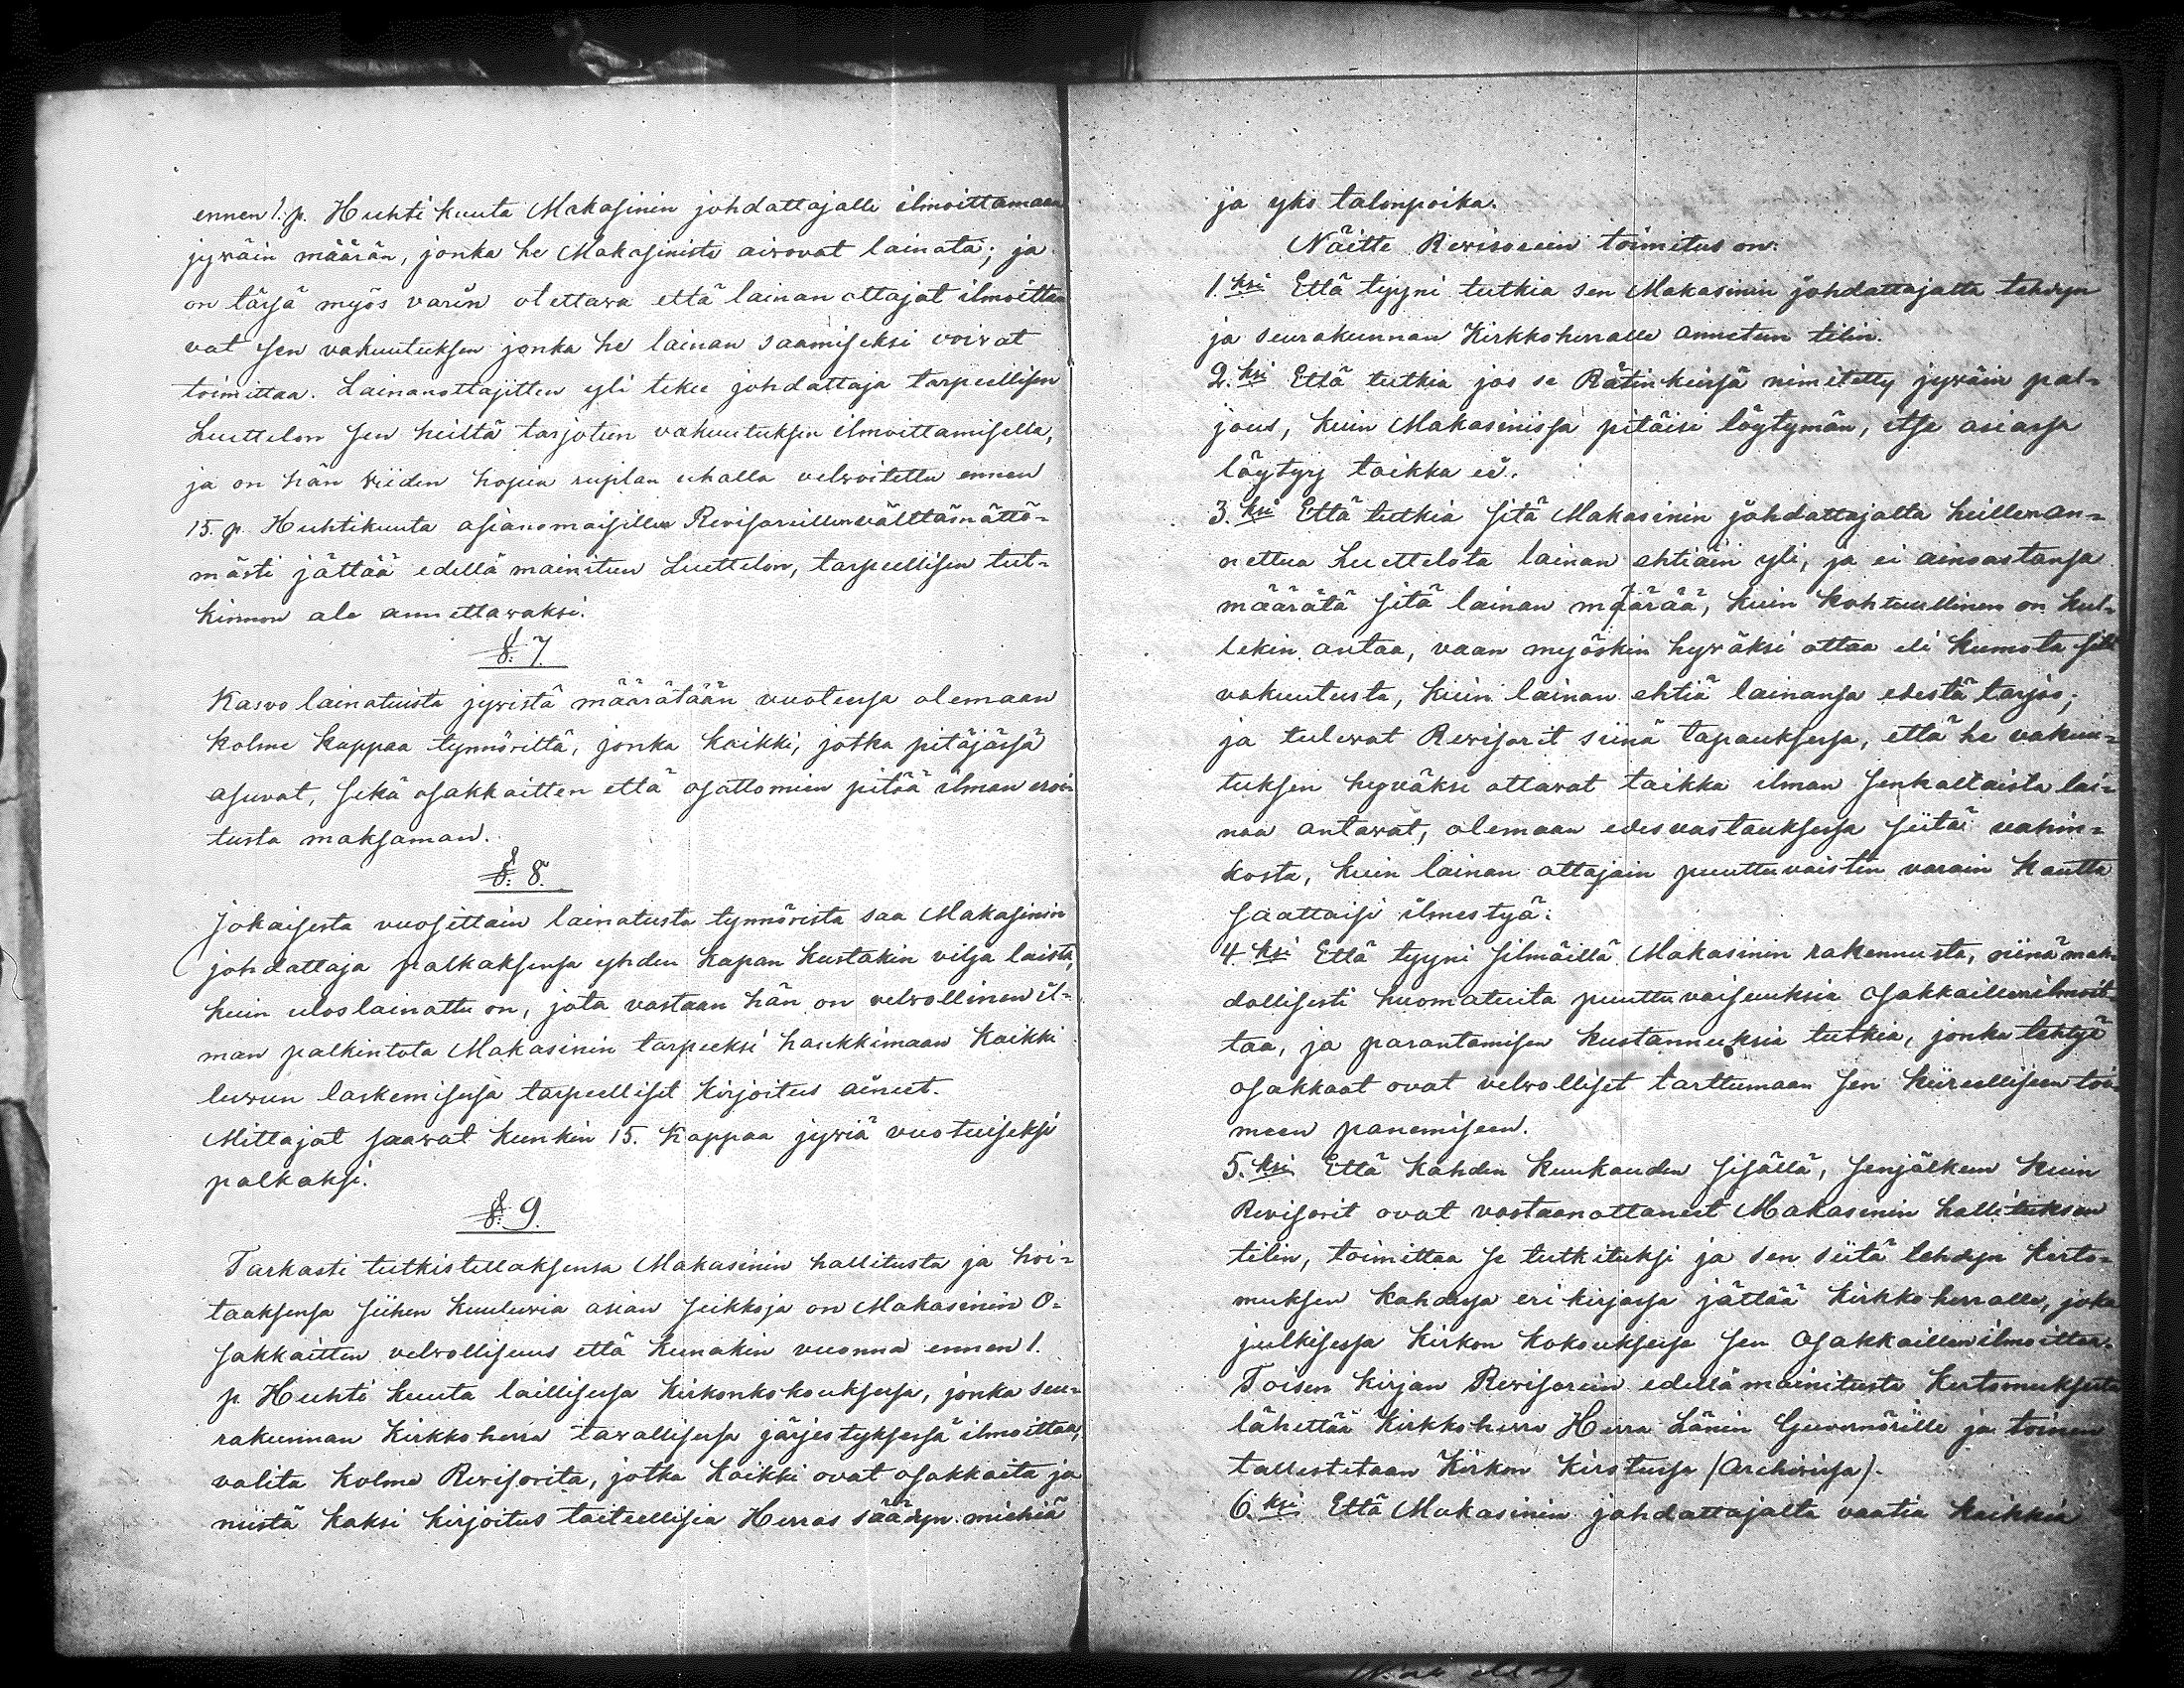 ennen 1. p. Huhti kuuta Makasinin johdattajalle ilmoittamaan
jywäin määrän, jonka he Makasinista aiwovat lainata; ja
on tässä myös variin otettawa että lainan ottajat ilmoitta
vat sen vakuutuksen jonka he lainan saamiseksi voiwat
toimittaa. Lainanottajitten yli tekee johdattaja tarpeellisen
Luettelon sen heiltä tarjotun vakuutuksen ilmoittamisella,
ja on hän viiden hopia ruplan uhalla velwoitettu ennen
15. p. Huhtikuuta asianomaisillen Revisoreillen välttämättö-
mästi jättää edellä mainitun Luettelon, tarpeellisen tut-
kinnon ale annettawaksi.
§. 7.
Kaswo lainatuista jywistä määrätään vuoteesa olemaan
kolme kappaa tynnöriltä, jonka kaikki, jotka pitäjässä
asuvat, sekä osakkaitten että osattomien pitää ilman eroi-
tusta maksaman.
§. 8.
Jokaisesta vuosittain lainatusta tynnöristä saa Makasinin
johdattaja palkaksensa yhden kapan kustakin vilja laista,
kuin uloslainattu on, jota vastaan hän on velwollinen il-
man palkintota Makasinin tarpeeksi hankkimaan kaikki
luwun laskemisessa tarpeelliset kirjoitus aineet.
Mittajat saawat kunkin 15. kappaa jywiä vuotuiseksi
palkaksi.
§. 9.
Tarkasti tutkistellaksensa Makasinin hallitusta ja hoi-
taaksensa siihen kuuluwia asian seikkoja on Makasinin O-
sakkaitten velwollisuus että kunakin vuonna ennen 1.
p. Huhti kuuta laillisessa kirkonkokouksessa, jonka seu-
rakunnan Kirkkoherra tawallisessa järjestyksessä ilmoittaa,
valita kolme Rewisorita, jotka kaikki ovat osakkaita ja
niistä kaksi kirjoitus taiteellisia Herras säädyn miehiä
ja yks talonpoika.
Näitte Rewisorein toimitus on:
1. ksi Että tyyni tutkia sen Makasinin johdattajalta tehdyn
ja seurakunnan Kirkkoherralle annetun tilin.
2. ksi Että tutkia jos se Rätinkeissä nimitetty jywäin pal-
jous, kuin Makasinissa pitäisi löytymän, itse asiassa
löytyy taikka ei.
3. ksi Että tutkia sitä Makasinin johdattajalta heillen an-
nettua Luettelota lainan ehtiäin yli, ja ei ainoastansa
määrätä sitä lainan määrää, kuin kohtuullinen on kul-
lekin antaa, vaan myöskin hywäksi ottaa eli kumota sitä
vakuutusta, kuin lainan ehtiä lainansa edestä tarjoo;
ja tulewat Rewisorit siinä tapauksessa, että he vakuu-
tuksen hyväksi ottawat taikka ilman senkaltaista lai-
naa antawat, olemaan edesvastauksessa siitä vahin-
kosta, kuin lainan ottajain puuttuvaisten varain kautta
saattaisi ilmestyä.
4. ksi Että tyyni silmäillä Makasinin rakennusta, siinä mah-
dollisesti huomatuita puuttuvaisuuksia Osakkaillen ilmoit-
taa, ja parantamisen kustannuksia tutkia, jonka tehtyä
osakkaat ovat velwolliset tarttumaan sen kiireelliseen toi-
meen panemiseen.
5. ksi Että kahden kuukauden sisällä, senjälkeen kuin
Rewisorit ovat vastaanottaneet Makasinin hallituksen
tilin, toimittaa se tutkituksi ja sen siitä tehdyn kerto-
muksen kahdessa eri kirjassa jättää kirkkoherralle, joka
julkisessa kirkon kokouksessa sen Osakkaillen ilmoittaa.
Toisen kirjan Rewisorein edellämainitusta kertomuksesta
lähettää kirkkoherra Herra Länin Guvernörille ja toinen
tallestetaan Kirkon kirstussa (Archivissa).
6. ksi Että Makasinin johdattajalta vaatia kaikkia